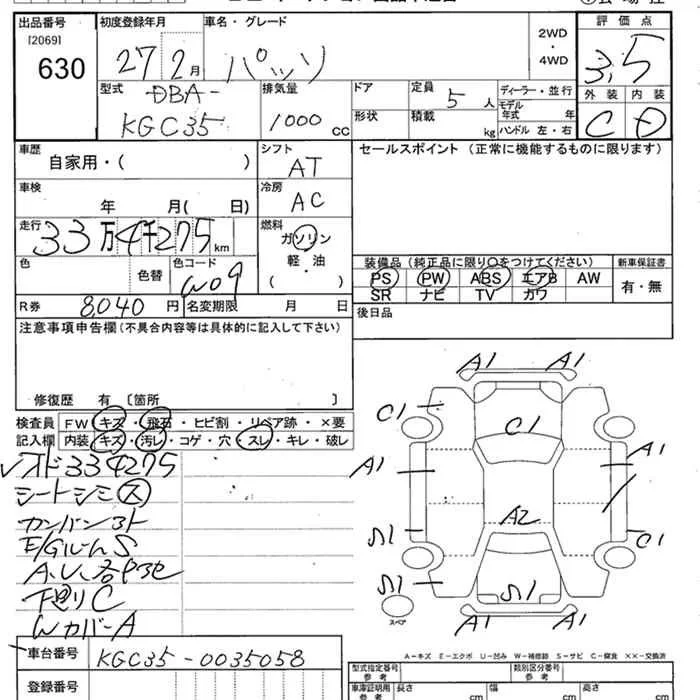 出品番号
[2069]
630
初度登録年月
27 2月
車名・グレード
パッソ
2WD
・
4WD
評価点
3.5
型式
DBA-
KGC35
排気量
1000 CC
ドア
形状
定員
5 人
積載
kg
ディーラー・並行
モデル
年式 年
ハンドル 左・右
外装 内装
C D
車歴
自家用・( )
シフト
AT
セールスポイント (正常に機能するものに限ります)
車検
年 月( 日)
冷房
AC
走行
33万4千275km
燃料
ガソリン
軽・油
( )
色
色替
色コード
W09
装備品 (純正品に限り○をつけてください)
PS PW ABS エアB AW
SR ナビ TV カワ
新車保証書
有・無
R券 8,040 円
名変期限 月 日
後日品
注意事項申告欄 (不具合内容等は具体的に記入して下さい)
修復歴 有 〔箇所 〕
検査員
記入欄
FW キズ・飛石・ヒビ割・リペア跡・×要
内装 キズ・汚レ・コゲ・穴・スレ・キレ・破レ
334275
シートシミス
E/GルームS
下廻りC
WカバーA
A1 A1
C1
C1
A1
A1
A2
C1
A1 A1
スペア
A-キズ E-エクボ U-凹み W-補修跡 S-サビ C-腐食 ××-交換済
車台番号
KGC35-0035058
登録番号
型式指定番号
参考
類別区分番号
参考
車庫証明用
参考
長さ cm
幅 cm
高さ cm